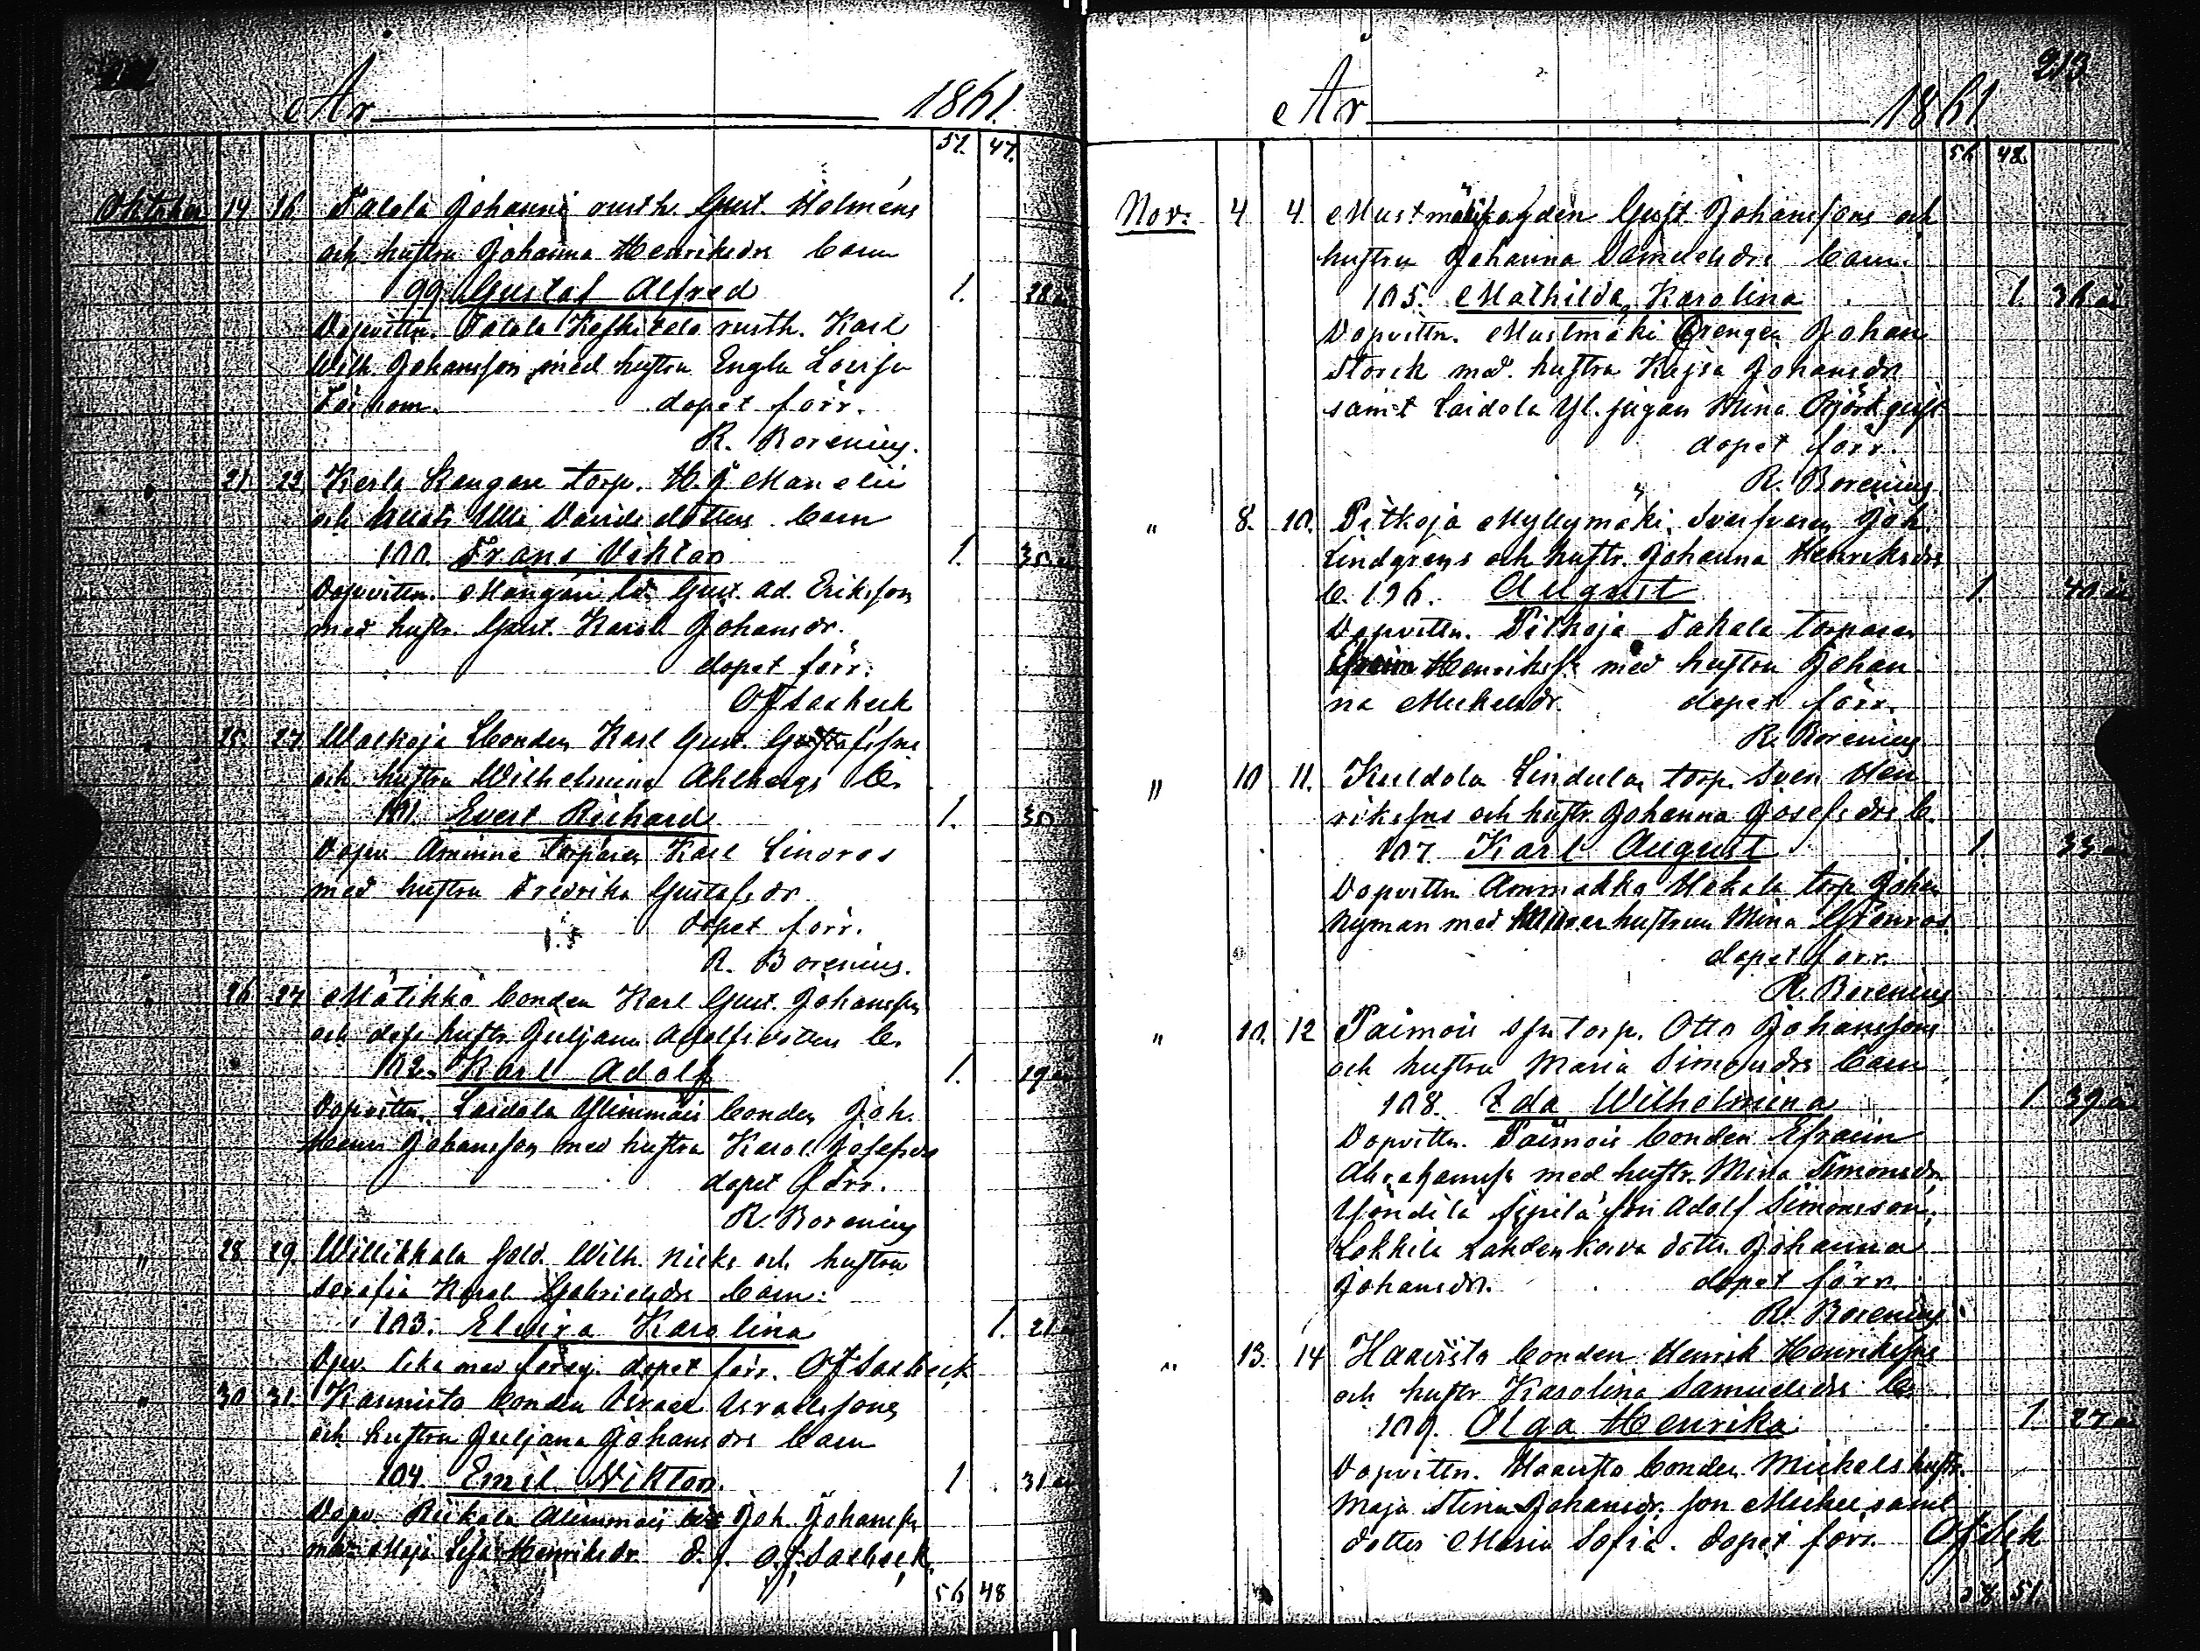 År 1861.
51. 47.
Oktober 14 16 Talola Johanni rusth. Gust. Holméns
och hustru Johanna Henriksdrs barn
99. Gustaf Alfred 1. 28 år
Dopvittn. Talola Keskitalo rusth. Karl
Wilh. Johansson med hustru Engla Lovisa
dopet förr.
R. Borenius.
" 21 23 Kesla Kangare torp. H. J. Manelii
och Ulla Davidsdotters barn
100. Frans Viktor 1.
Dopvittn. Gust. Ad. Eriksson
med hustr. Gust. Karol. Johansdr.
dopet förr.
O F Saxbeck
" 25. 27 Walkoja bonden Karl Gust. Gustafssns
och hustru Wilhelmina Ahlbergs b.
101 Evert Richard 1. 30
Dopv. torparen Karl Lindros
med hustru Fredrika Gustafsdr
dopet förr.
R. Borenius.
" 26 27 Mätikkö bonden Karl Gust. Johanssns
och dess hustr. Juljana Adolfsdotters b.
102. Karl Adolf 1. 19 år
Dopvittn. Laidola Ylimmäis bonden Joh.
Johansson med hustru Karol. Josefsdr
dopet förr.
R. Borenius
" 28 29. Willikkala sold. Wilh. Nicks och hustru
Serafia Karol. Gabrielsdrs barn:
103. Elvira Karolina 1. 21 år
Dpv. lika med föreg. dopet förr. O F Saxbeck
" 30 31. Kaunisto bonden Israel Israelssons
och hustru Juljana Johansdrs barn
104. Emil Viktor. 1 31 år
Dopv. Rickala Alimmäis Joh. Johanssn
med Maja Lisa Henriksdr. d. f. O. F. Saxbeck.
56 48
213
År 1861
56 48.
Nov. 4 4. Mustmäki Gust. Johanssons och
hustru Johanna Samuelsdrs barn.
105. Mathilda Karolina 1. 36 år
Dopvittn. Mustmäki drengen Johan
Storck med hustru Kajsa Johansdr
samt Laidola Yl. pigan Mina Björkqvist
dopet förr.
R. Borenius
" 8. 10. Pitkoja Myllymäki Joh.
Lindgrens och hustr. Johanna Henriksdrs
b. 106. August 1. 40 år
Dopvittn. Pitkoja Takala torparen
Efraim Henrikss. med hustru Johan
na Mickelsdr. dopet förr.
R. Borenius
" 10 11. Kuldola Lindula torp. Sven Hen
rikssns och hustr. Johanna Josefsdrs b.
107 Karl August 1. 33 år
Dopvittn. Ammakka Hakala torp. Johan
Nyman med hustrun Mina Grönros
dopet förr.
R. Borenius
" 10. 12 Paimois torp. Otto Johanssons
och hustru Maria Simonsdrs barn
108. Ida Wilhelmina 1 39 år
Dopvittn. Paimois bonden Efraim
Abrahamss. med hustr. Mina Simonsdr.
Yöndilä Sipilä son Adolf Simonsson,
Lokkila dotter Johanna
Johansdr. dopet förr.
R. Borenius
" 13. 14 Haavisto bonden Henrik Henrikssns
och hustr. Karolina Samuelsdrs b.
109. Olga Henrika 1. 27 år
Dopvittn. Haavisto bonden Mickels hustr.
Maja Stina Johansdr, son Mickel samt
dotter Maria Sofia. dopet förr. O F Sbk
58. 51.